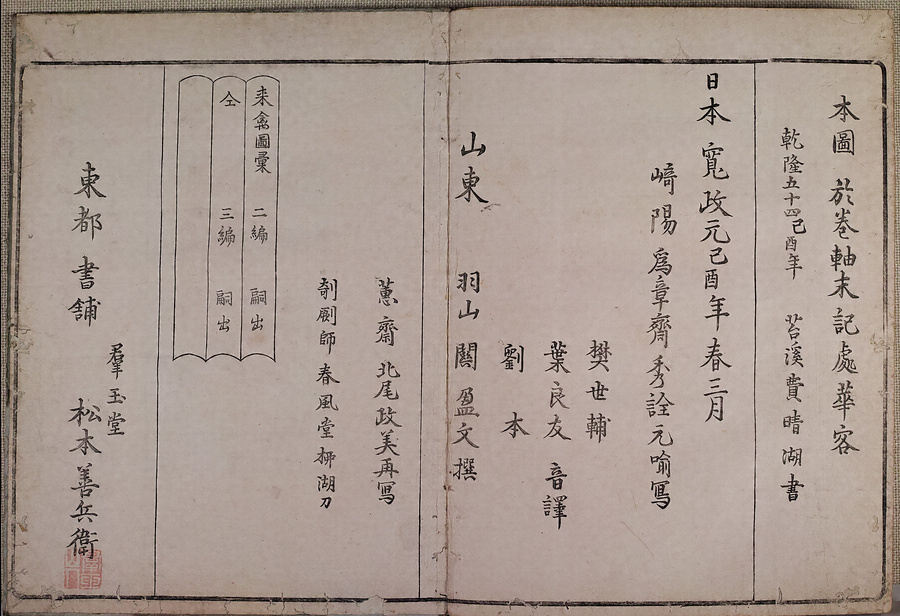 本圖 於卷軸末記處華客
乾隆五十四己酉年 苕溪費晴湖書
日本 寬政元己酉年春三月
﨑陽 爲章齋秀詮元喩寫
樊世輔
葉良友 音譯
劉本
山東 羽山 關盈文撰
蕙齋 北尾政美再寫
剞劂師 春風堂栁湖刀
来禽圖彙 二編 嗣出
仝 三編 嗣出
東都 書舗
羣玉堂
松本善兵衛